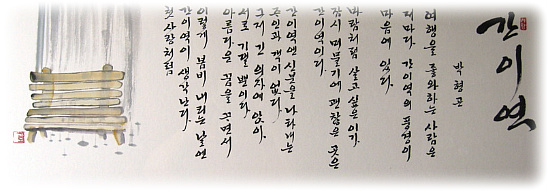 간이역
여행을 좋아하는 사람은
저마다. 간이역의 풍경이
마음에 있다.
바람처럼 살고 싶은 이가
잠시 머물기에 괜찮은 곳은
간이역이다.
간이역엔 신분을 나타내는
주인과 객이 없다.
그저 긴 의자에 앉아
서로 기댈 뿐이다.
아름다운 꿈을 꾸면서
이렇게 봄비 내리는 날엔
간이역이 생각난다.
첫사랑처럼